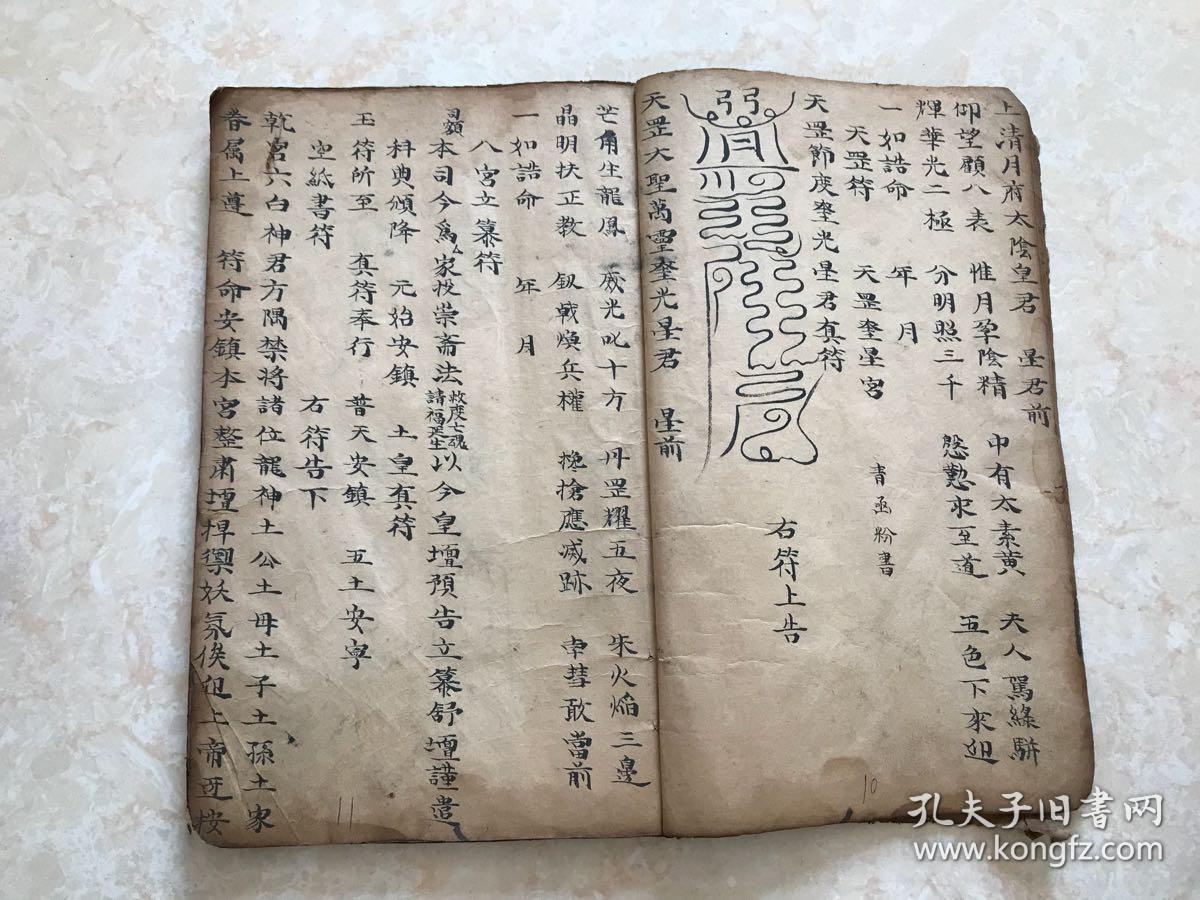 上清月府太陰皇君　星君前
仰望顧八表　惟月孕陰精　中有太素黄　夫人駕綠駢
輝華光二極　分明照三千　慇懃求至道　五色下來迎
一如誥命　年　月
天罡符　天罡魁星宮　青函粉書
天罡節度魁光星君真符
右符上告
天罡大聖萬靈魁光星君　星前
芒角生龍鳳　威光叱十方　丹罡耀五夜　朱火焰三邊
晶明扶正教　釼戟煥兵權　攙搶應滅跡　孛彗敢當前
一如誥命　年　月
八宮立纂符
司額 本司今爲人家投崇斋法 救度亡魂 請福延生 以今皇壇預告立纂舒壇謹當
科典頒降　元始安鎮　土皇真符
玉符所至　真符奉行　普天安鎮　五土安寧
空紙書符　右符告下
乾宮六白神君方隅禁將諸位龍神土公土母土子土孫土家
眷属上遵　符命安鎮本宮整肅壇墠禦妖氛候迎上帝迓按
10
11
孔夫子旧书网
www.kongfz.com